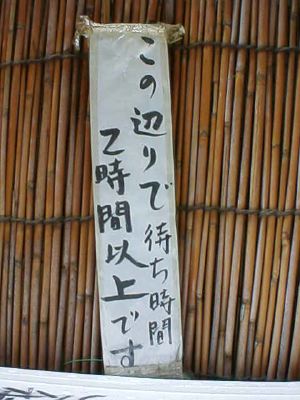 この辺りで待ち時間
2時間以上です